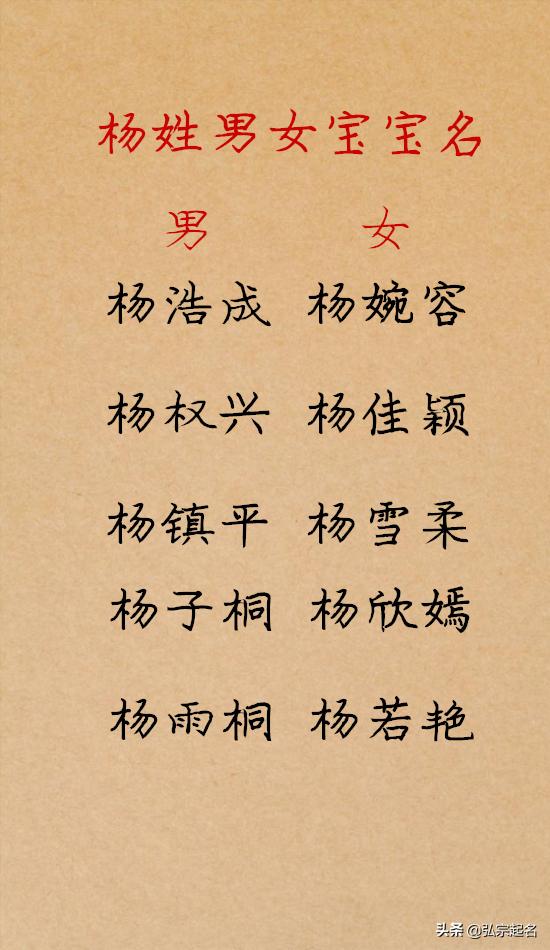 杨姓男女宝宝名
男 女
杨浩成 杨婉容
杨权兴 杨佳颖
杨镇平 杨雪柔
杨子桐 杨欣嫣
杨雨桐 杨若艳
头条 @弘宗起名